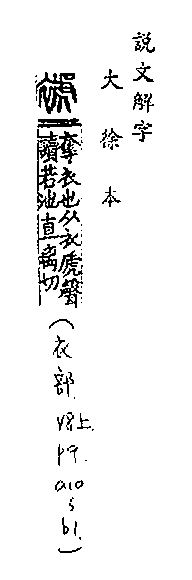 説文解字
大徐本
褫
奪衣也从衣虒聲
讀若池直离切
(衣部. V8上. p9. a10 s b1.)